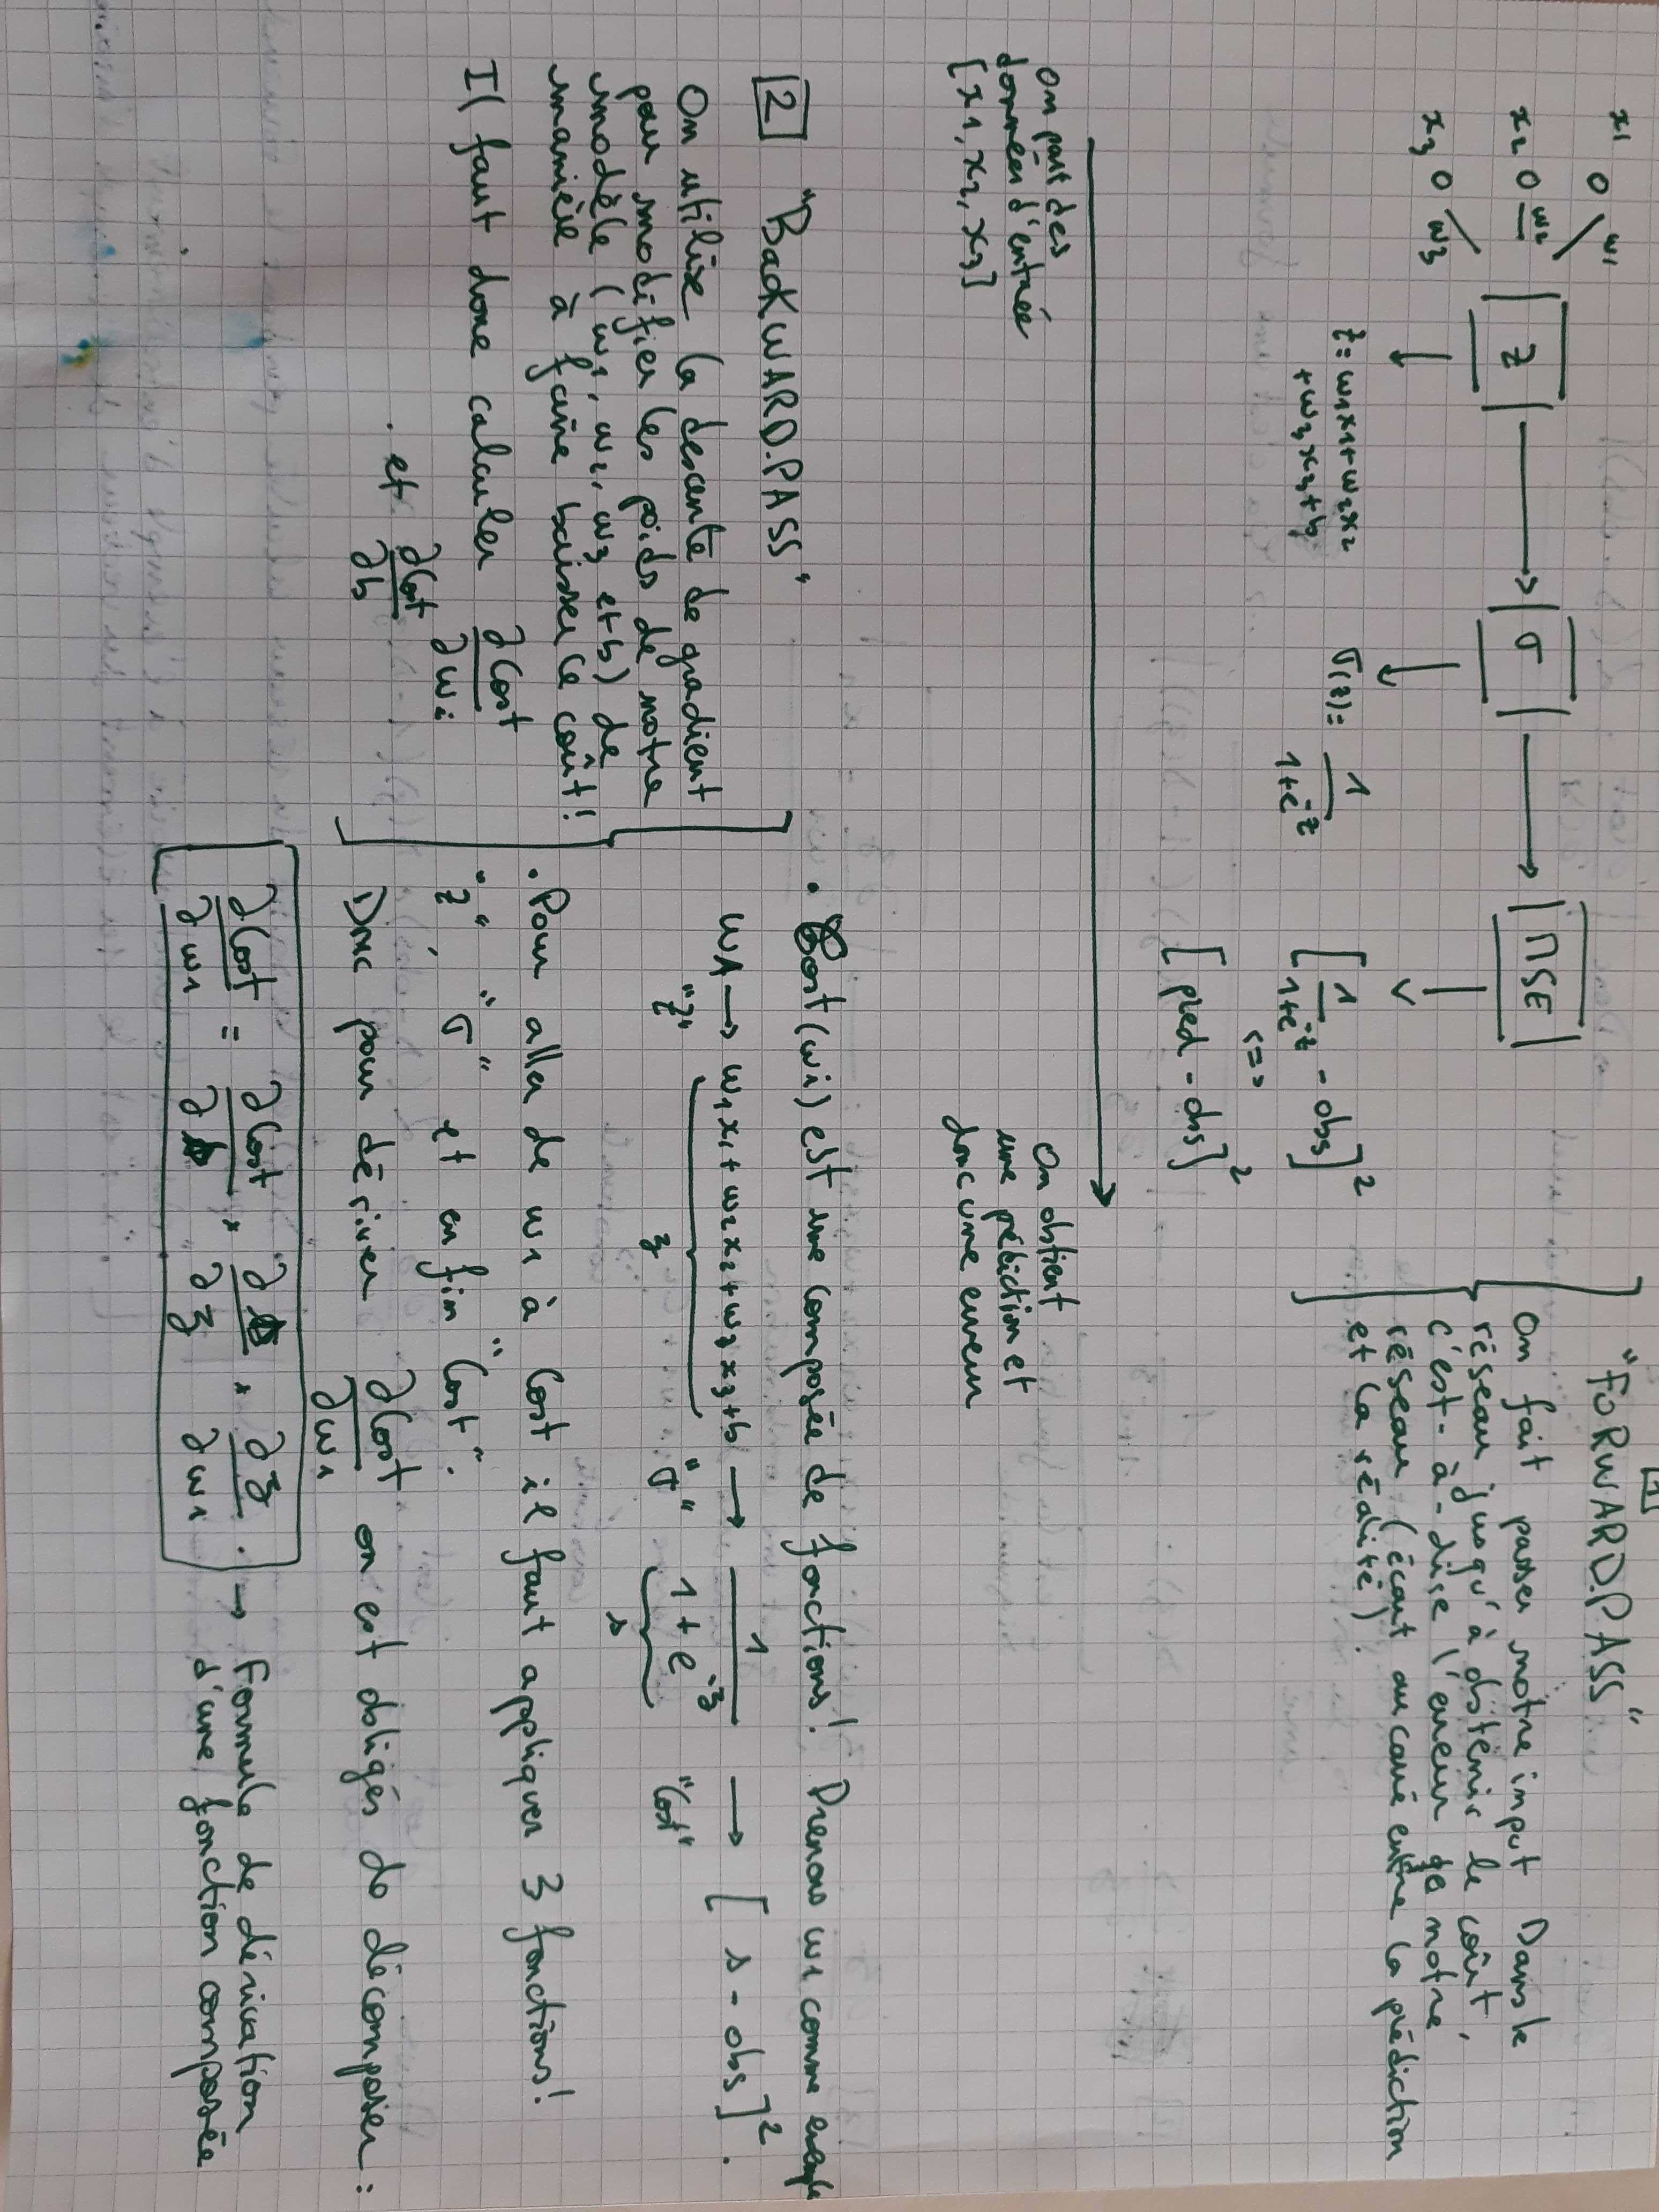 [1]
"FORWARD.PASS"
x1 O w1
x2 O w2
x3 O w3
[Z] → [σ] → [MSE]
z = w1x1 + w2x2
+ w3x3 + b
σ(z) = 1/(1+e^-z)
[1/(1+e^-z) - obs]²
<=>
[pred - obs]²
On fait passer notre input Dans le
réseau jusqu'à obtenir le coût,
c'est-à-dire l'erreur de notre
réseau (écart au carré entre la prédiction
et la réalité).
On part des
données d'entrée
[x1, x2, x3]
On obtient
une prédiction et
donc une erreur
[2] "BackWARD.PASS"
On utilise la descente de gradient
pour modifier les poids de notre
modèle (w1, w2, w3 et b) de
manière à faire baisser ce coût!
Il faut donc calculer ∂Cost/∂wi
. et ∂Cost/∂b
. Cost(wi) est une composée de fonctions! Prenons w1 comme exemple
w1 → w1x1 + w2x2 + w3x3 + b → 1/(1+e^-z) → [s - obs]².
"z" z "σ" s "Cost"
. Pour aller de w1 à Cost il faut appliquer 3 fonctions!
"z", "σ" et enfin "Cost".
Donc pour dériver ∂Cost/∂w1 on est obligés de décomposer:
∂Cost/∂w1 = ∂Cost/∂s × ∂s/∂z × ∂z/∂w1 . → Formule de dérivation
d'une fonction composée